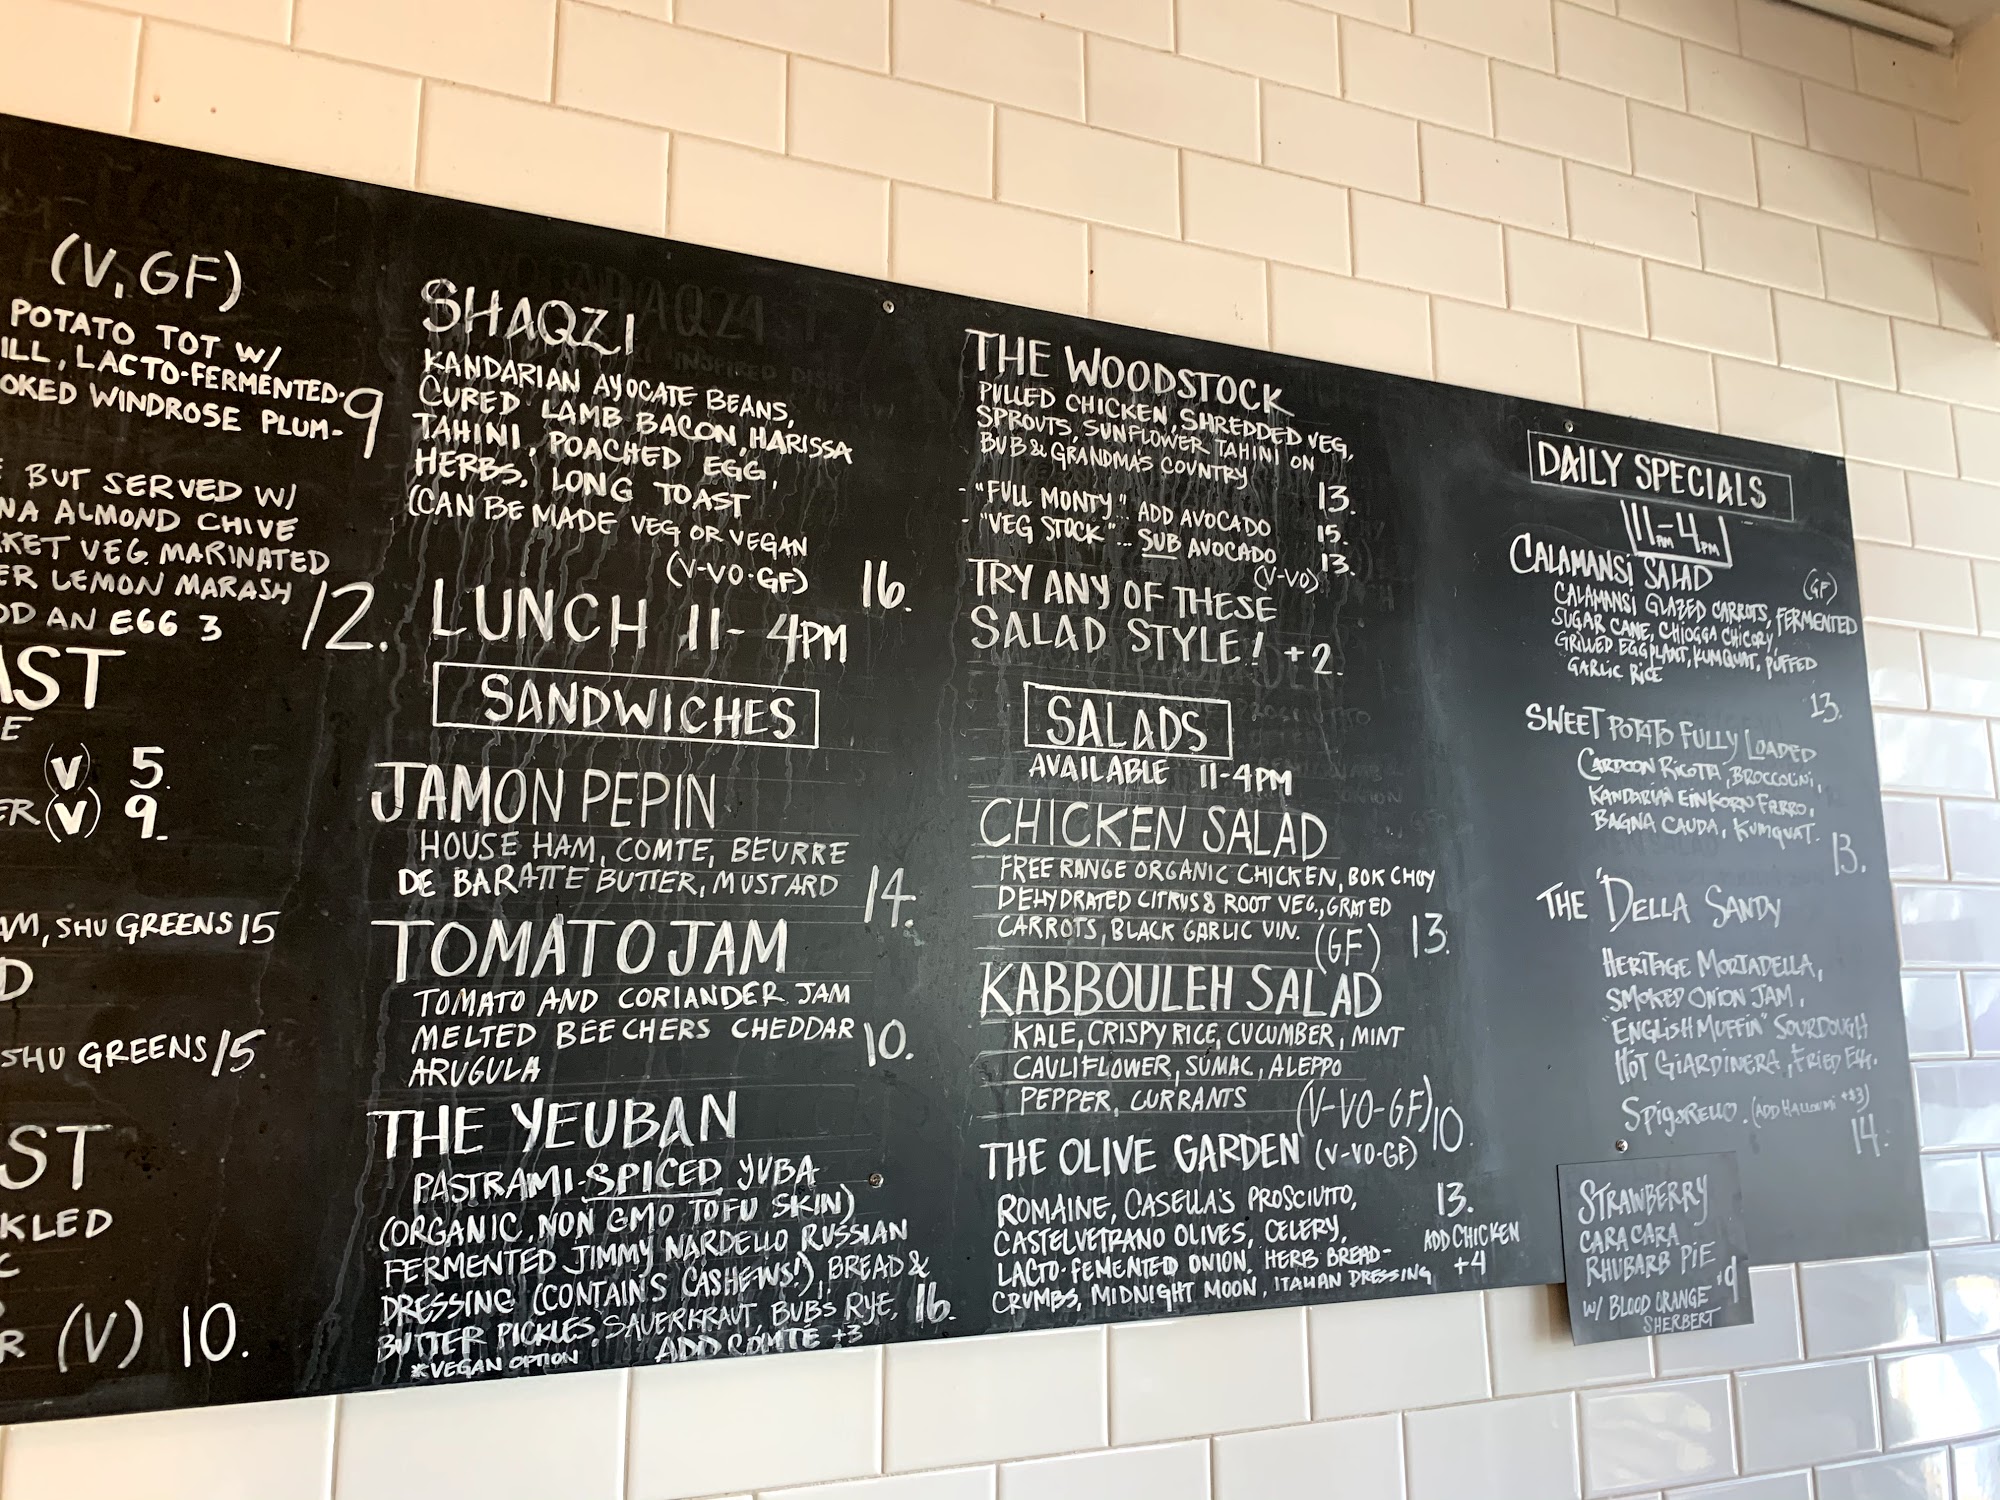 (V, GF)
POTATO TOT W/
ILL, LACTO-FERMENTED
OKED WINDROSE PLUM-
9
BUT SERVED W/
NA ALMOND CHIVE
KET VEG. MARINATED
ER LEMON MARASH
DD AN EGG 3
12.
AST
E
(V) 5.
ER (V) 9.
AM, SHU GREENS 15
D
SHU GREENS 15
ST
KLED
C
R (V) 10.
SHAQZI
KANDARIAN AYOCATE BEANS,
CURED LAMB BACON, HARISSA
TAHINI, POACHED EGG,
HERBS, LONG TOAST
(CAN BE MADE VEG OR VEGAN
(V-VO-GF) 16.
LUNCH 11-4PM
SANDWICHES
JAMON PEPIN
HOUSE HAM, COMTE, BEURRE
DE BARATTE BUTTER, MUSTARD 14.
TOMATO JAM
TOMATO AND CORIANDER JAM
MELTED BEECHERS CHEDDAR 10.
ARUGULA
THE YEUBAN
PASTRAMI-SPICED YUBA
(ORGANIC, NON GMO TOFU SKIN)
FERMENTED JIMMY NARDELLO RUSSIAN
DRESSING (CONTAINS CASHEWS!), BREAD &
BUTTER PICKLES SAUERKRAUT, BUBS RYE, 16.
*VEGAN OPTION ADD COMTÉ +3
THE WOODSTOCK
PULLED CHICKEN, SHREDDED VEG,
SPROUTS, SUNFLOWER TAHINI ON
BUB & GRANDMAS COUNTRY
13.
- "FULL MONTY".. ADD AVOCADO 15.
- "VEG STOCK"... SUB AVOCADO 13.
(V-VO)
TRY ANY OF THESE
SALAD STYLE! +2.
SALADS
AVAILABLE 11-4PM
CHICKEN SALAD
FREE RANGE ORGANIC CHICKEN, BOK CHOY
DEHYDRATED CITRUS & ROOT VEG., GRATED
CARROTS, BLACK GARLIC VIN. (GF) 13.
KABBOULEH SALAD
KALE, CRISPY RICE, CUCUMBER, MINT
CAULIFLOWER, SUMAC, ALEPPO
PEPPER, CURRANTS (V-VO-GF) 10.
THE OLIVE GARDEN (V-VO-GF)
ROMAINE, CASELLA'S PROSCIUTTO, 13.
CASTELVETRANO OLIVES, CELERY, ADD CHICKEN
LACTO-FEMENTED ONION, HERB BREAD- +4
CRUMBS, MIDNIGHT MOON, ITALIAN DRESSING
DAILY SPECIALS
11AM-4PM
CALAMANSI SALAD (GF)
CALAMANSI GLAZED CARROTS, FERMENTED
SUGAR CANE, CHIOGGA CHICORY,
GRILLED EGGPLANT, KUMQUAT, PUFFED
GARLIC RICE
13.
SWEET POTATO FULLY LOADED
CARDOON RICOTTA, BROCCOLINI,
KANDARIAN EINKORN FARRO,
BAGNA CAUDA, KUMQUAT.
13.
THE 'DELLA SANDY
HERITAGE MORTADELLA,
SMOKED ONION JAM,
"ENGLISH MUFFIN" SOURDOUGH
HOT GIARDINERA, FRIED EGG.
SPIGARELLO. (ADD HALLOUMI +$3)
14.
STRAWBERRY
CARA CARA
RHUBARB PIE
W/ BLOOD ORANGE
SHERBERT
9